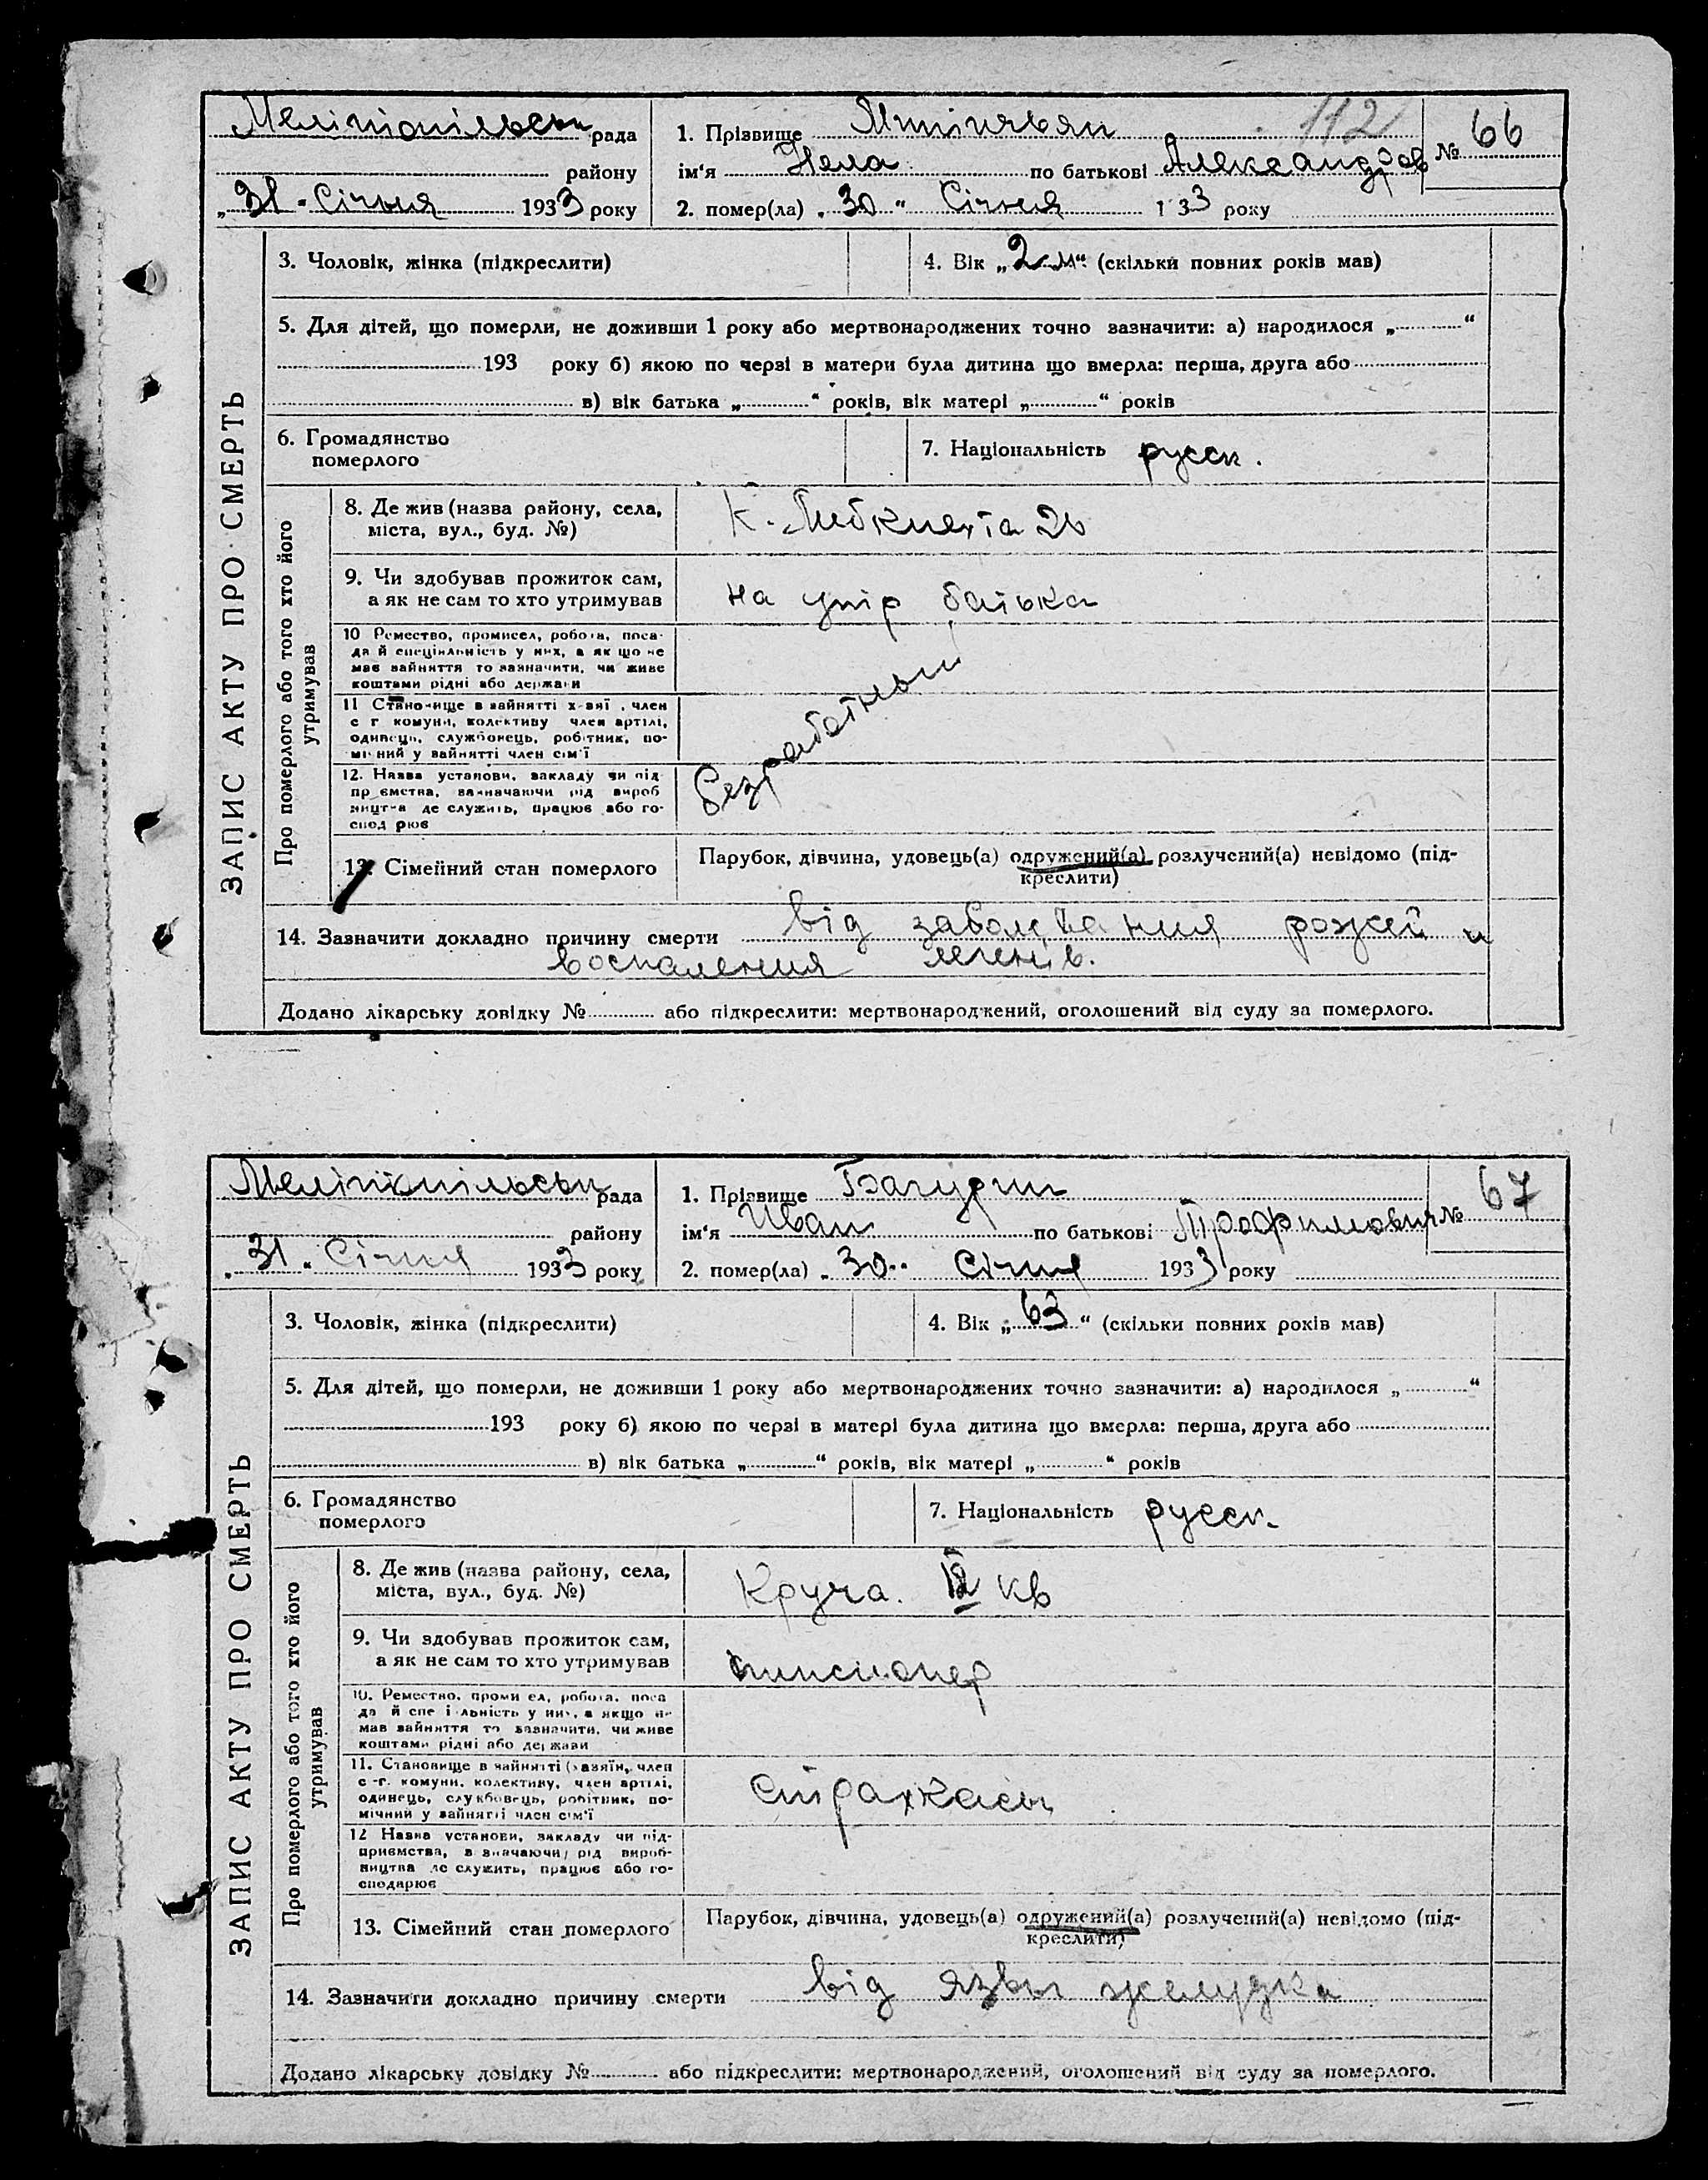 Мелітопільськ рада
району
„31" Січня 1933 року
1. Прізвище 112
ім'я Нела по батькові Александров
№ 66
2. помер(ла) „30" Січня 1933 року
ЗАПИС АКТУ ПРО СМЕРТЬ
3. Чоловік, жінка (підкреслити)
4. Вік „2 м" (скільки повних років мав)
5. Для дітей, що померли, не доживши 1 року або мертвонароджених точно зазначити: а) народилося „ "
193 року б) якою по черзі в матери була дитина що вмерла: перша, друга або
в) вік батька „ " років, вік матері „ " років
6. Громадянство
померлого
7. Національність русск.
Про померлого або того хто його
утримував
8. Де жив (назва району, села,
міста, вул., буд. №)
К. Либкнехта 26
9. Чи здобував прожиток сам,
а як не сам то хто утримував
на утр батька
10 Ремество, промисел, робота, поса-
да й спеціяльність у них, а як що не
має зайняття то зазначити, чи живе
коштами рідні або держави
11 Становище в зайнятті х-зяї , член
с г комуни, колективу член артілі,
одинець, службовець, робітник, по-
мічний у зайнятті член сім'ї
безработный
12. Назва установи, закладу чи під
пр ємства, зазначаючи рід вироб
ництва де служить, працює або го-
спод рює
13. Сімейний стан померлого
Парубок, дівчина, удовець(а) одружений(а) розлучений(а) невідомо (під-
креслити)
14. Зазначити докладно причину смерти від заболевания рожей и
воспаления легенів.
Додано лікарську довідку № або підкреслити: мертвонароджений, оголошений від суду за померлого.
Мелітопільськ рада
району
„31" Січня 1933 року
1. Прізвище Багурин
ім'я Иван по батькові Трофимович
№ 67
2. помер(ла) „30" Січня 1933 року
ЗАПИС АКТУ ПРО СМЕРТЬ
3. Чоловік, жінка (підкреслити)
4. Вік „63" (скільки повних років мав)
5. Для дітей, що померли, не доживши 1 року або мертвонароджених точно зазначити: а) народилося „ "
193 року б) якою по черзі в матері була дитина що вмерла: перша, друга або
в) вік батька „ " років, вік матері „ " років
6. Громадянство
померлого
7. Національність русск.
Про померлого або того хто його
утримував
8. Де жив (назва району, села,
міста, вул., буд. №)
Круча. кв
9. Чи здобував прожиток сам,
а як не сам то хто утримував
пинсионер
10. Ремество, проми ел, робота, поса
да й спе і льність у них, а якщо не
мав зайняття то зазначити, чи живе
коштами рідні або держави
11. Становище в зайнятті (хазяїн, член
с -г. комуни, колективу, член артілі,
одинець, службовець, робітник, по-
мічний у зайнятті член сім'ї
страхкасы
12 Назва установи, закладу чи під-
приємства, зазначаючи рід вироб-
ництва де служить, працює або го-
сподарює
13. Сімейний стан померлого
Парубок, дівчина, удовець(а) одружений(а) розлучений(а) невідомо (під-
креслити)
14. Зазначити докладно причину смерти від язвы желудка
Додано лікарську довідку № або підкреслити: мертвонароджений, оголошений від суду за померлого.